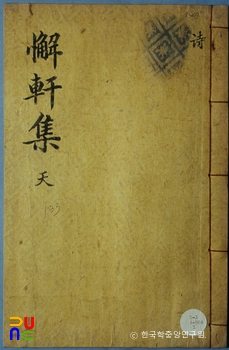 懈軒集
天
詩
© 한국학중앙연구원